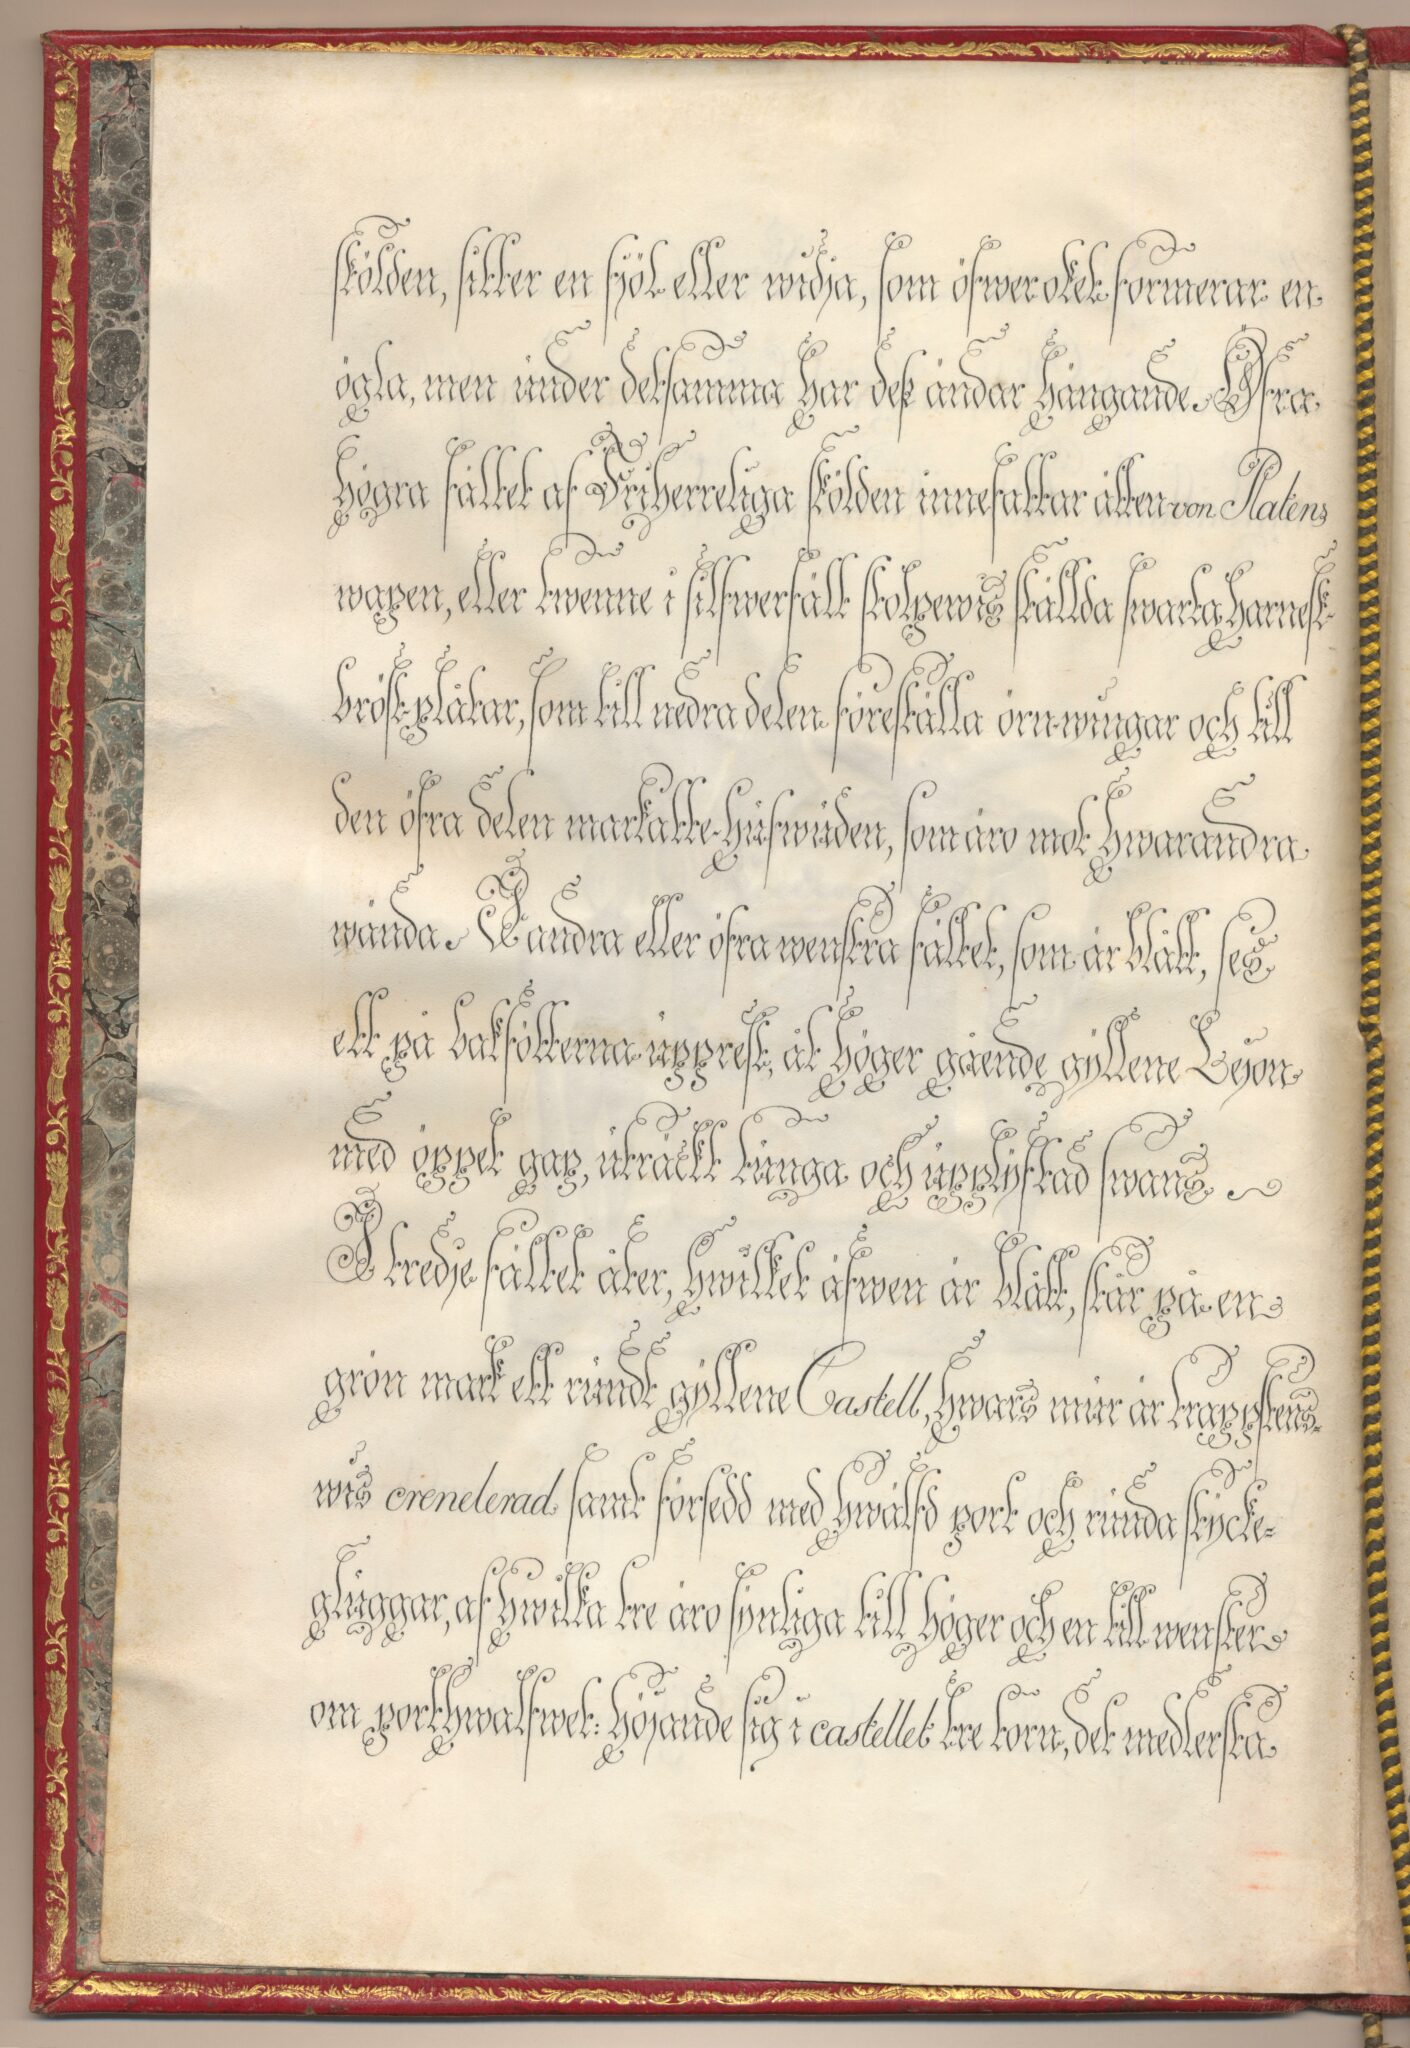 skölden, sitter en syöl eller widja, som öfwer oket formerar en
ögla, men under detsamma har deß ändar hängande. Öfra
högra fältet af Friherreliga skölden innefattar ätten von Platens
wapen, eller twenne i silfwerfält stolpewis ställda swarta harnesk-
bröst-plåtar, som till nedra delen föreställa örn-wingar och till
den öfra delen markatte-hufwuden, som äro mot hwarandra
wända. I andra eller öfra wenstra fältet, som är blått, ses
ett på bakfötterna upprest, åt höger gående gyllene Leyon
med öppet gap, uträckt tunga och upplyftad swans.
I tredje fältet åter, hwilket äfwen är blått, står på en
grön mark ett rundt gyllene Castell, hwars mur är trappstens-
wis crenelerad samt försedd med hwälfd port och runda stycke-
gluggar, af hwilka tre äro synliga till höger och en till wenster
om porthwalfwet: höjande sig i castellet tre torn, det medlersta